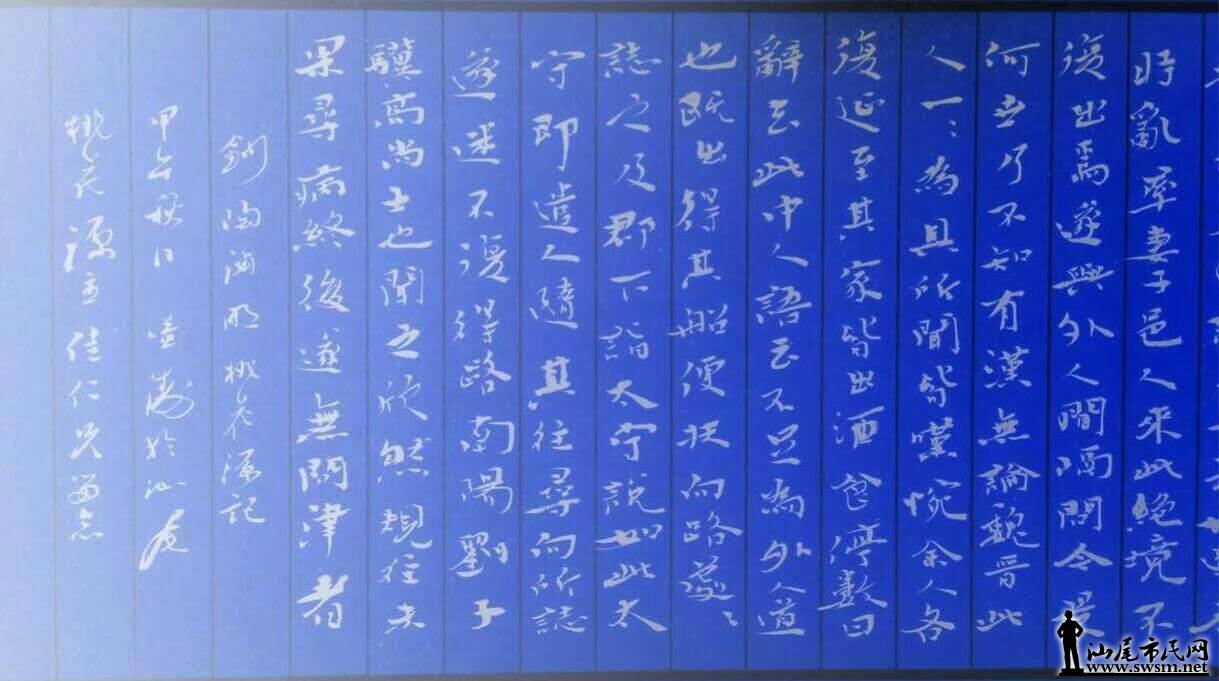 時亂率妻子邑人来此絶境不
復出焉遂與外人間隔問今是
何世乃不知有漢無論魏晋此
人一〻為具所聞皆嘆惋余人各
復延至其家皆出酒食停數日
辭去此中人語云不足為外人道
也既出得其船便扶向路處〻
誌之及郡下詣太守說如此太
守即遣人隨其往尋向所誌
遂迷不復得路南陽劉子
驥高尚士也聞之欣然規往未
果尋病終後遂無問津者
鈔陶淵明桃花源記
甲午秋日於汕尾
桃花源主佳仁兄留念
汕尾市民网
www.swsm.net